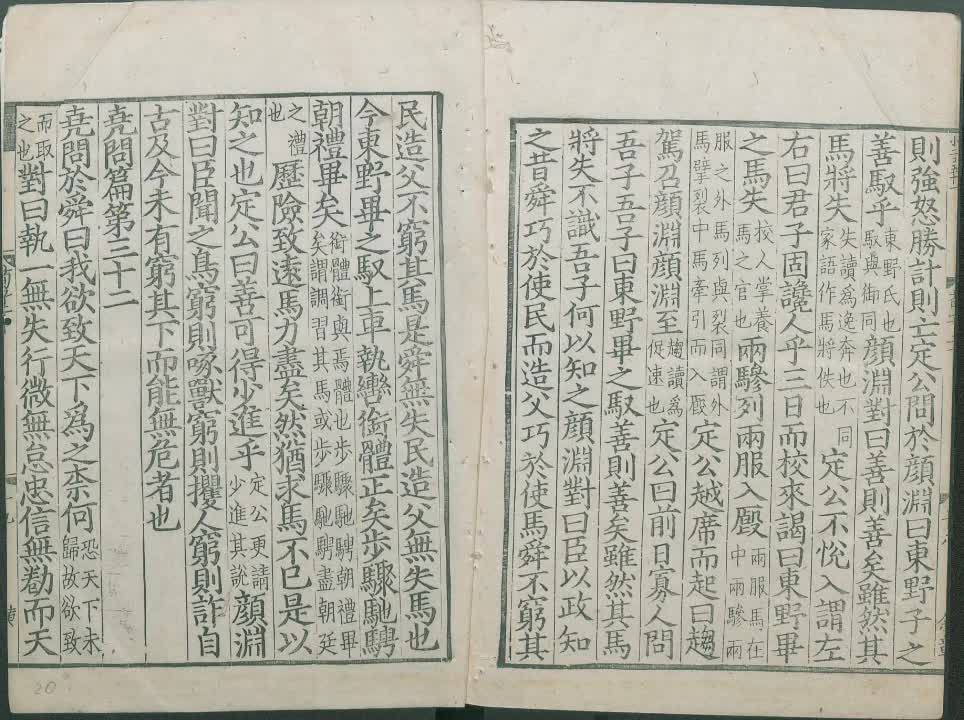 則強怒勝計則亡定公問於顔淵曰東野子之
善馭乎東野氏也馭與御同顔淵對曰善則善矣雖然其
馬將失失讀為逸奔也不同家語作馬將佚也定公不悅入謂左
右曰君子固讒人乎三日而校來謁曰東野畢
之馬失校人掌養馬之官也兩驂列兩服入廏兩服馬在中兩驂兩
服之外馬列與裂同謂外馬擘裂中馬牽引而入廐定公越席而起曰趨
駕召顔淵顔淵至趨讀為促速也定公曰前日寡人問
吾子吾子曰東野畢之馭善則善矣雖然其馬
將失不識吾子何以知之顔淵對曰臣以政知
之昔舜巧於使民而造父巧於使馬舜不窮其
民造父不窮其馬是舜無失民造父無失馬也
今東野畢之馭上車執轡銜體正矣步驟馳騁
朝禮畢矣銜體銜與馬體也步驟馳騁朝禮畢矣謂調習其馬或步驟馳騁盡朝廷
之禮也歷險致遠馬力盡矣然猶求馬不已是以
知之也定公曰善可得少進乎定公更請少進其說顔淵
對曰臣聞之鳥窮則啄獸窮則攫人窮則詐自
古及今未有窮其下而能無危者也
堯問篇第三十二
堯問於舜曰我欲致天下為之柰何恐天下未歸故欲致
而取之也對曰執一無失行微無怠忠信無勌而天